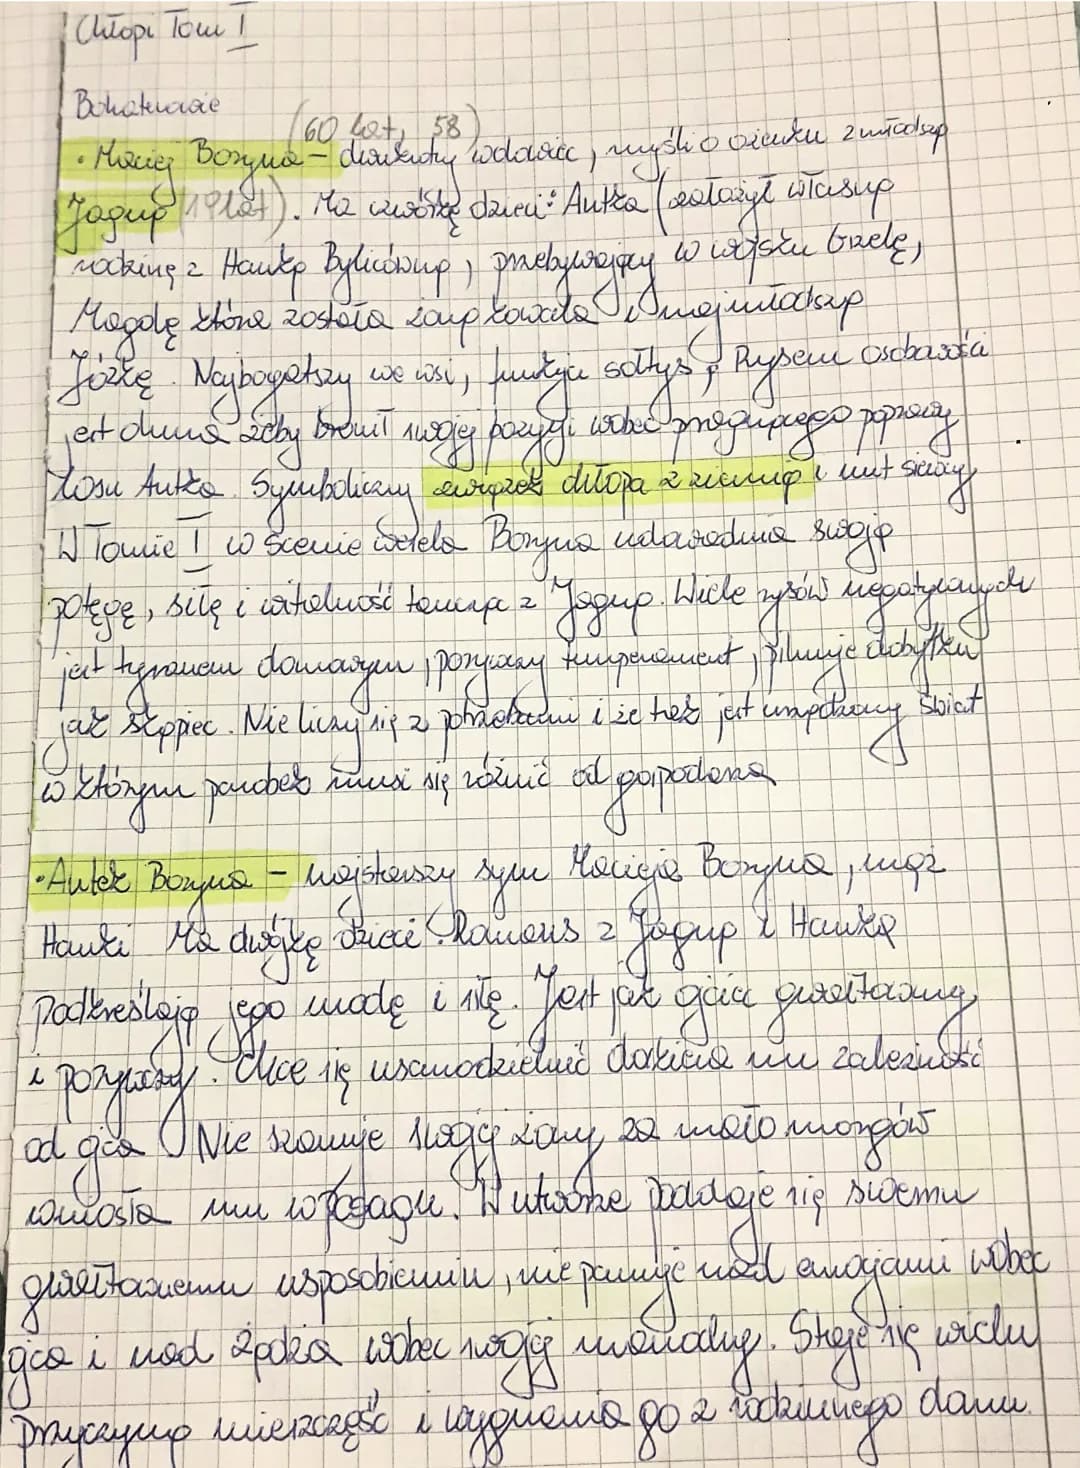 Chłopi Tom I
Bohaterowie
(60 lat, 58)
• Maciej Boryna – dwukrotny wdowiec, myśli o ożenku z młodszą
Jagną (19 lat). Ma czwórkę dzieci: Antka (założył własną
rodzinę z Hanką Bylicówną, przebywający w wojsku Grzelę,
Magdę która została żoną kowala i najmłodszą
Józkę. Najbogatszy we wsi, funkcja sołtys, Rysem osobowości
jest duma żeby bronił swojej pozycji wobec pragnącego poprawy
losu Antka. Symboliczny związek chłopa z ziemią i mit siewcy
W Tomie I w scenie wesela Boryna udowadnia swoją
potęgę, siłę i witalność tańcząc z Jagną. Wiele rysów negatywnych
jest tyranem domowym, porywczy temperament, pilnuje dobytku
jak skąpiec. Nie liczy się z potrzebami i że tak jest urządzony świat
w którym parobek musi się różnić od gospodarza
• Antek Boryna – najstarszy syn Macieja Boryna, mąż
Hanki Ma dwójkę dzieci. Romans z Jagną i Hanką
Podkreślają jego urodę i siłę. Jest jak ojciec gwałtowny
i porywczy. Chce się usamodzielnić dokucza mu zależność
od ojca Nie szanuje swojej żony, za mało morgów
wniosła mu w posagu. W utworze poddaje się swemu
gwałtownemu usposobieniu, nie panuje nad emocjami wobec
ojca i nad żądzą wobec swojej macochy. Staje się wielu
przyczyną nieszczęść i wygnania go z rodzinnego domu